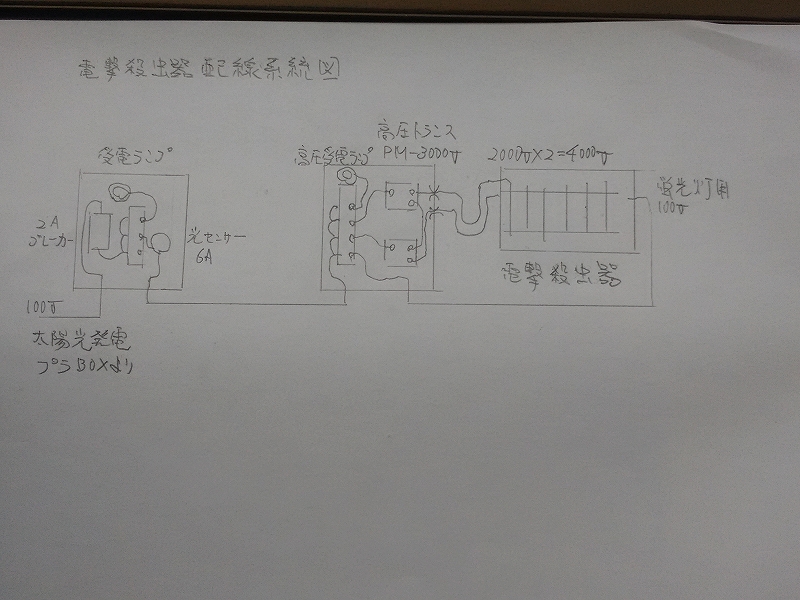 電撃殺虫器配線系統図
受電ランプ
2A
ブレーカー
光センサー
6A
100V
太陽光発電
プラBOXより
高圧受電ランプ
高圧トランス
PM-3000V
2000V×2=4000V
蛍光灯用
100V
電撃殺虫器